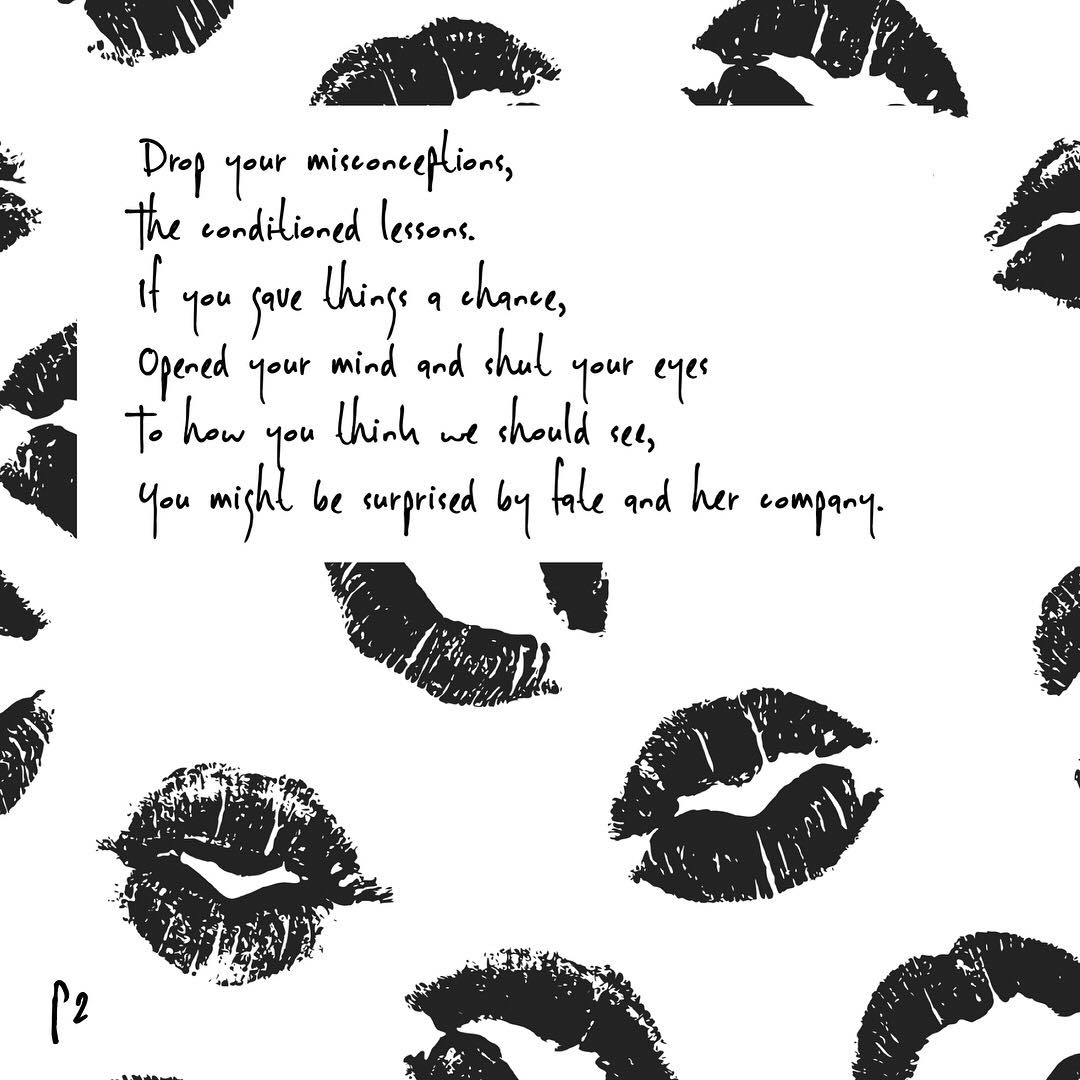 Drop your misconceptions,
the conditioned lessons.
If you gave things a chance,
Opened your mind and shut your eyes
To how you think we should see,
You might be surprised by fate and her company.
P2